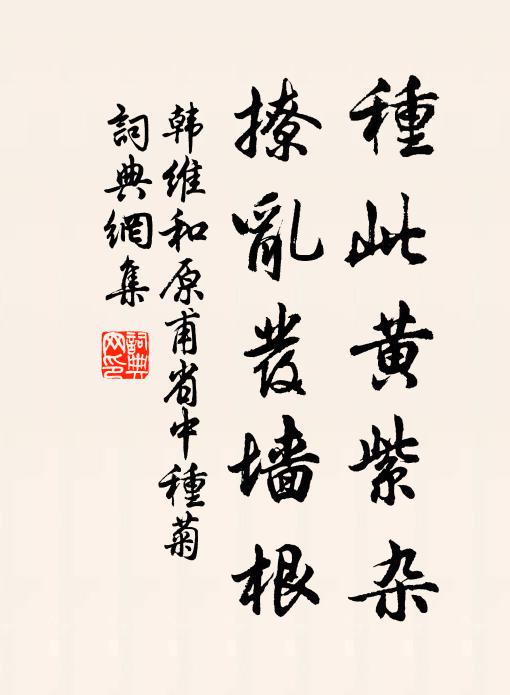 種此黄紫杂
撩亂發墙根
韩维和原甫省中種菊
詞典網集
詞典网印